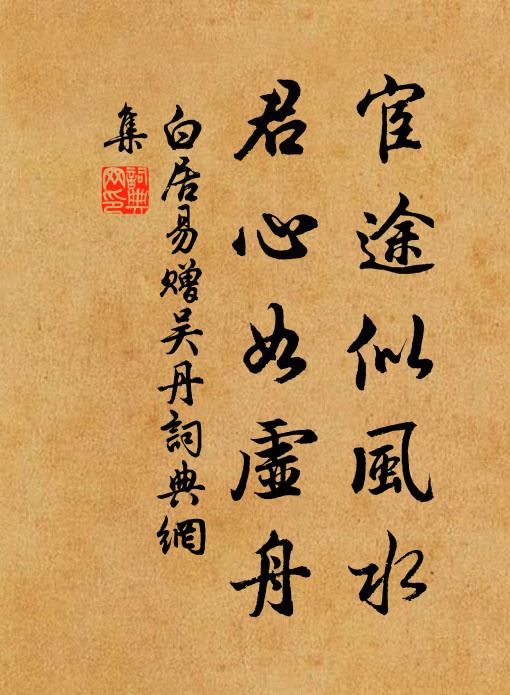 宦途似風水
君心如虛舟
白居易贈吴丹詞典網
集
詞典
网印